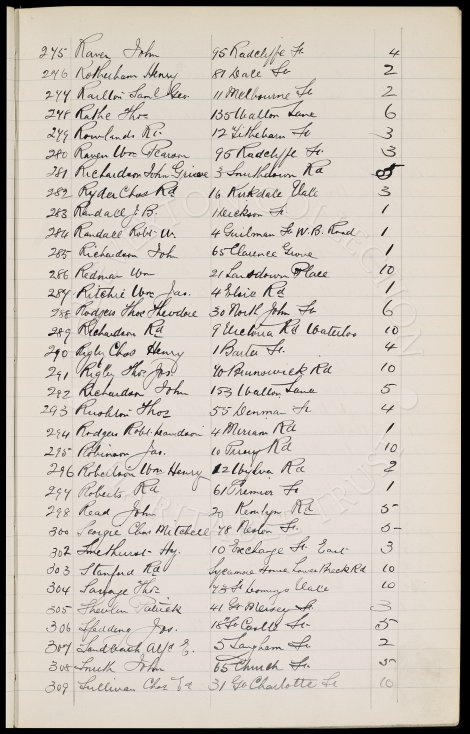 275 Raven John 95 Radcliffe St 4
276 Rotherham Henry 81 Dale St 2
277 Railton Saml Geo. 11 Melbourne St 2
278 Rathe Thos 135 Walton Lane 6
279 Rowlands Rt. 12 Tithebarn St 3
280 Raven Wm Pearson 95 Radcliffe St 3
281 Richardson John Grieve 3 Smithdown Rd 5
282 Ryder Chas Rd 16 Kirkdale Vale 3
283 Randall J. B. 1 St 1
284 Randall Robt W. 4 Guilman St W. B. Road 1
285 Richardson John 65 Clarence Grove 1
286 Redman Wm 21 Lansdown Place 10
287 Ritchie Wm Jas. 4 Elsie Rd 1
288 Rodgers Thos Theodore 30 North John St 6
289 Richardson Rd 9 Victoria Rd Waterloo 10
290 Rigby Chas Henry 1 Baster St. 4
291 Rigby Thos Jos 40 Brunswick Rd 10
292 Richardson John 153 Walton Lane 5
293 Rushton Thos 55 Denman St 4
294 Rodgers Robt 4 Miriam Rd 1
295 Robinson Jas. 10 Priory Rd 10
296 Robertson Wm Henry Rd 2
297 Roberts Rd 61 Premier St 1
298 Read John 20 Kemlyn Rd 5
300 Scorgie Chas Mitchell 78 Neston St. 5
302 Smethurst Hy. 10 Exchange St East 3
303 Stanford Rd Sycamore House Lower Breck Rd 10
304 Savage Thos 73 St Domingo Vale 10
305 Patrick 41 Gt Mersey St 3
306 Spedding Jos. 18 St Castle St 5
307 Sandbach Alfd E. 5 Langham St 2
308 Smith John 65 Church St 5
309 Sullivan Chas Ed 31 Gt Charlotte St 10